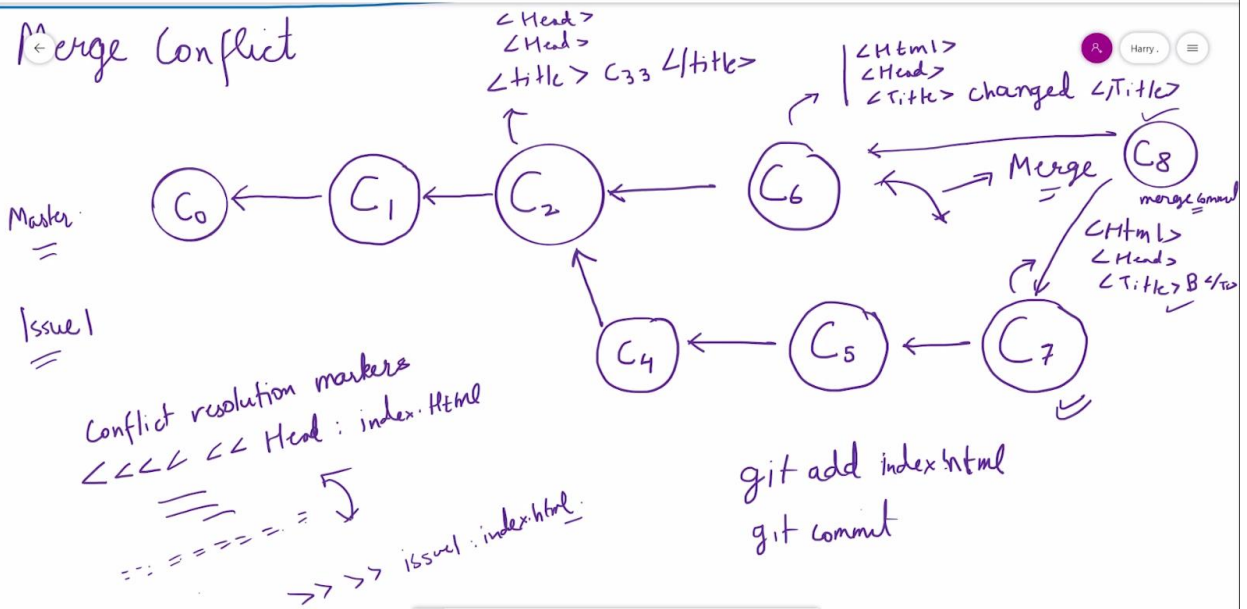 Merge Conflict
Harry.
<Head>
<Head>
<title> C33 </title>
<Html>
<Head>
<Title> changed </Title>
Master
C0
C1
C2
C6
C8
Merge
merge commit
<Html>
<Head>
<Title> B </Ti>
Issue1
C4
C5
C7
Conflict resolution markers
<<<< << Head : index.Html
=======
>>>> issue1 : index.html
git add index.html
git commit